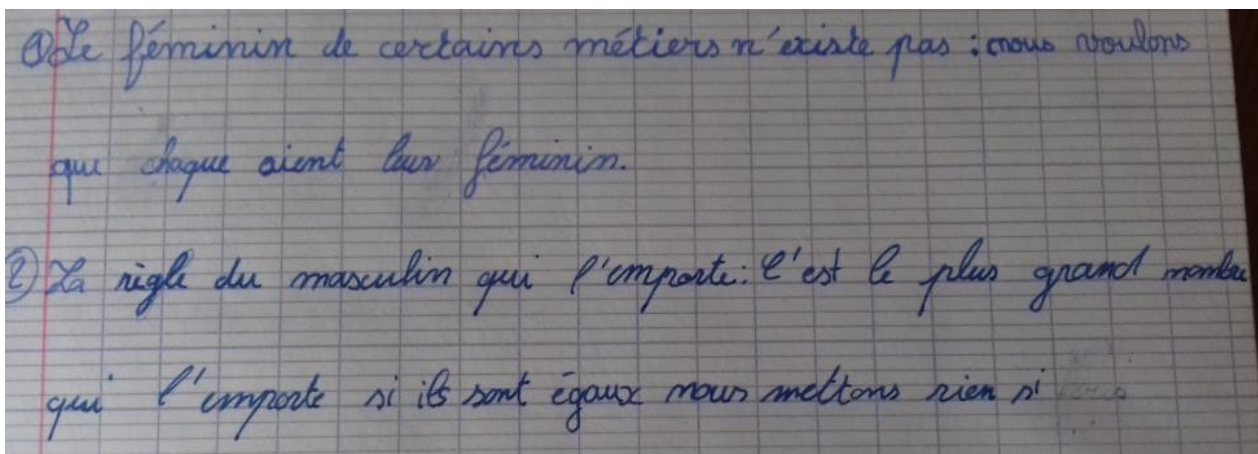 ① Le féminin de certains métiers n'existe pas : nous voulons
que chaque aient leur féminin.
② La règle du masculin qui l'emporte : c'est le plus grand nombre
qui l'emporte si ils sont égaux nous mettons rien si